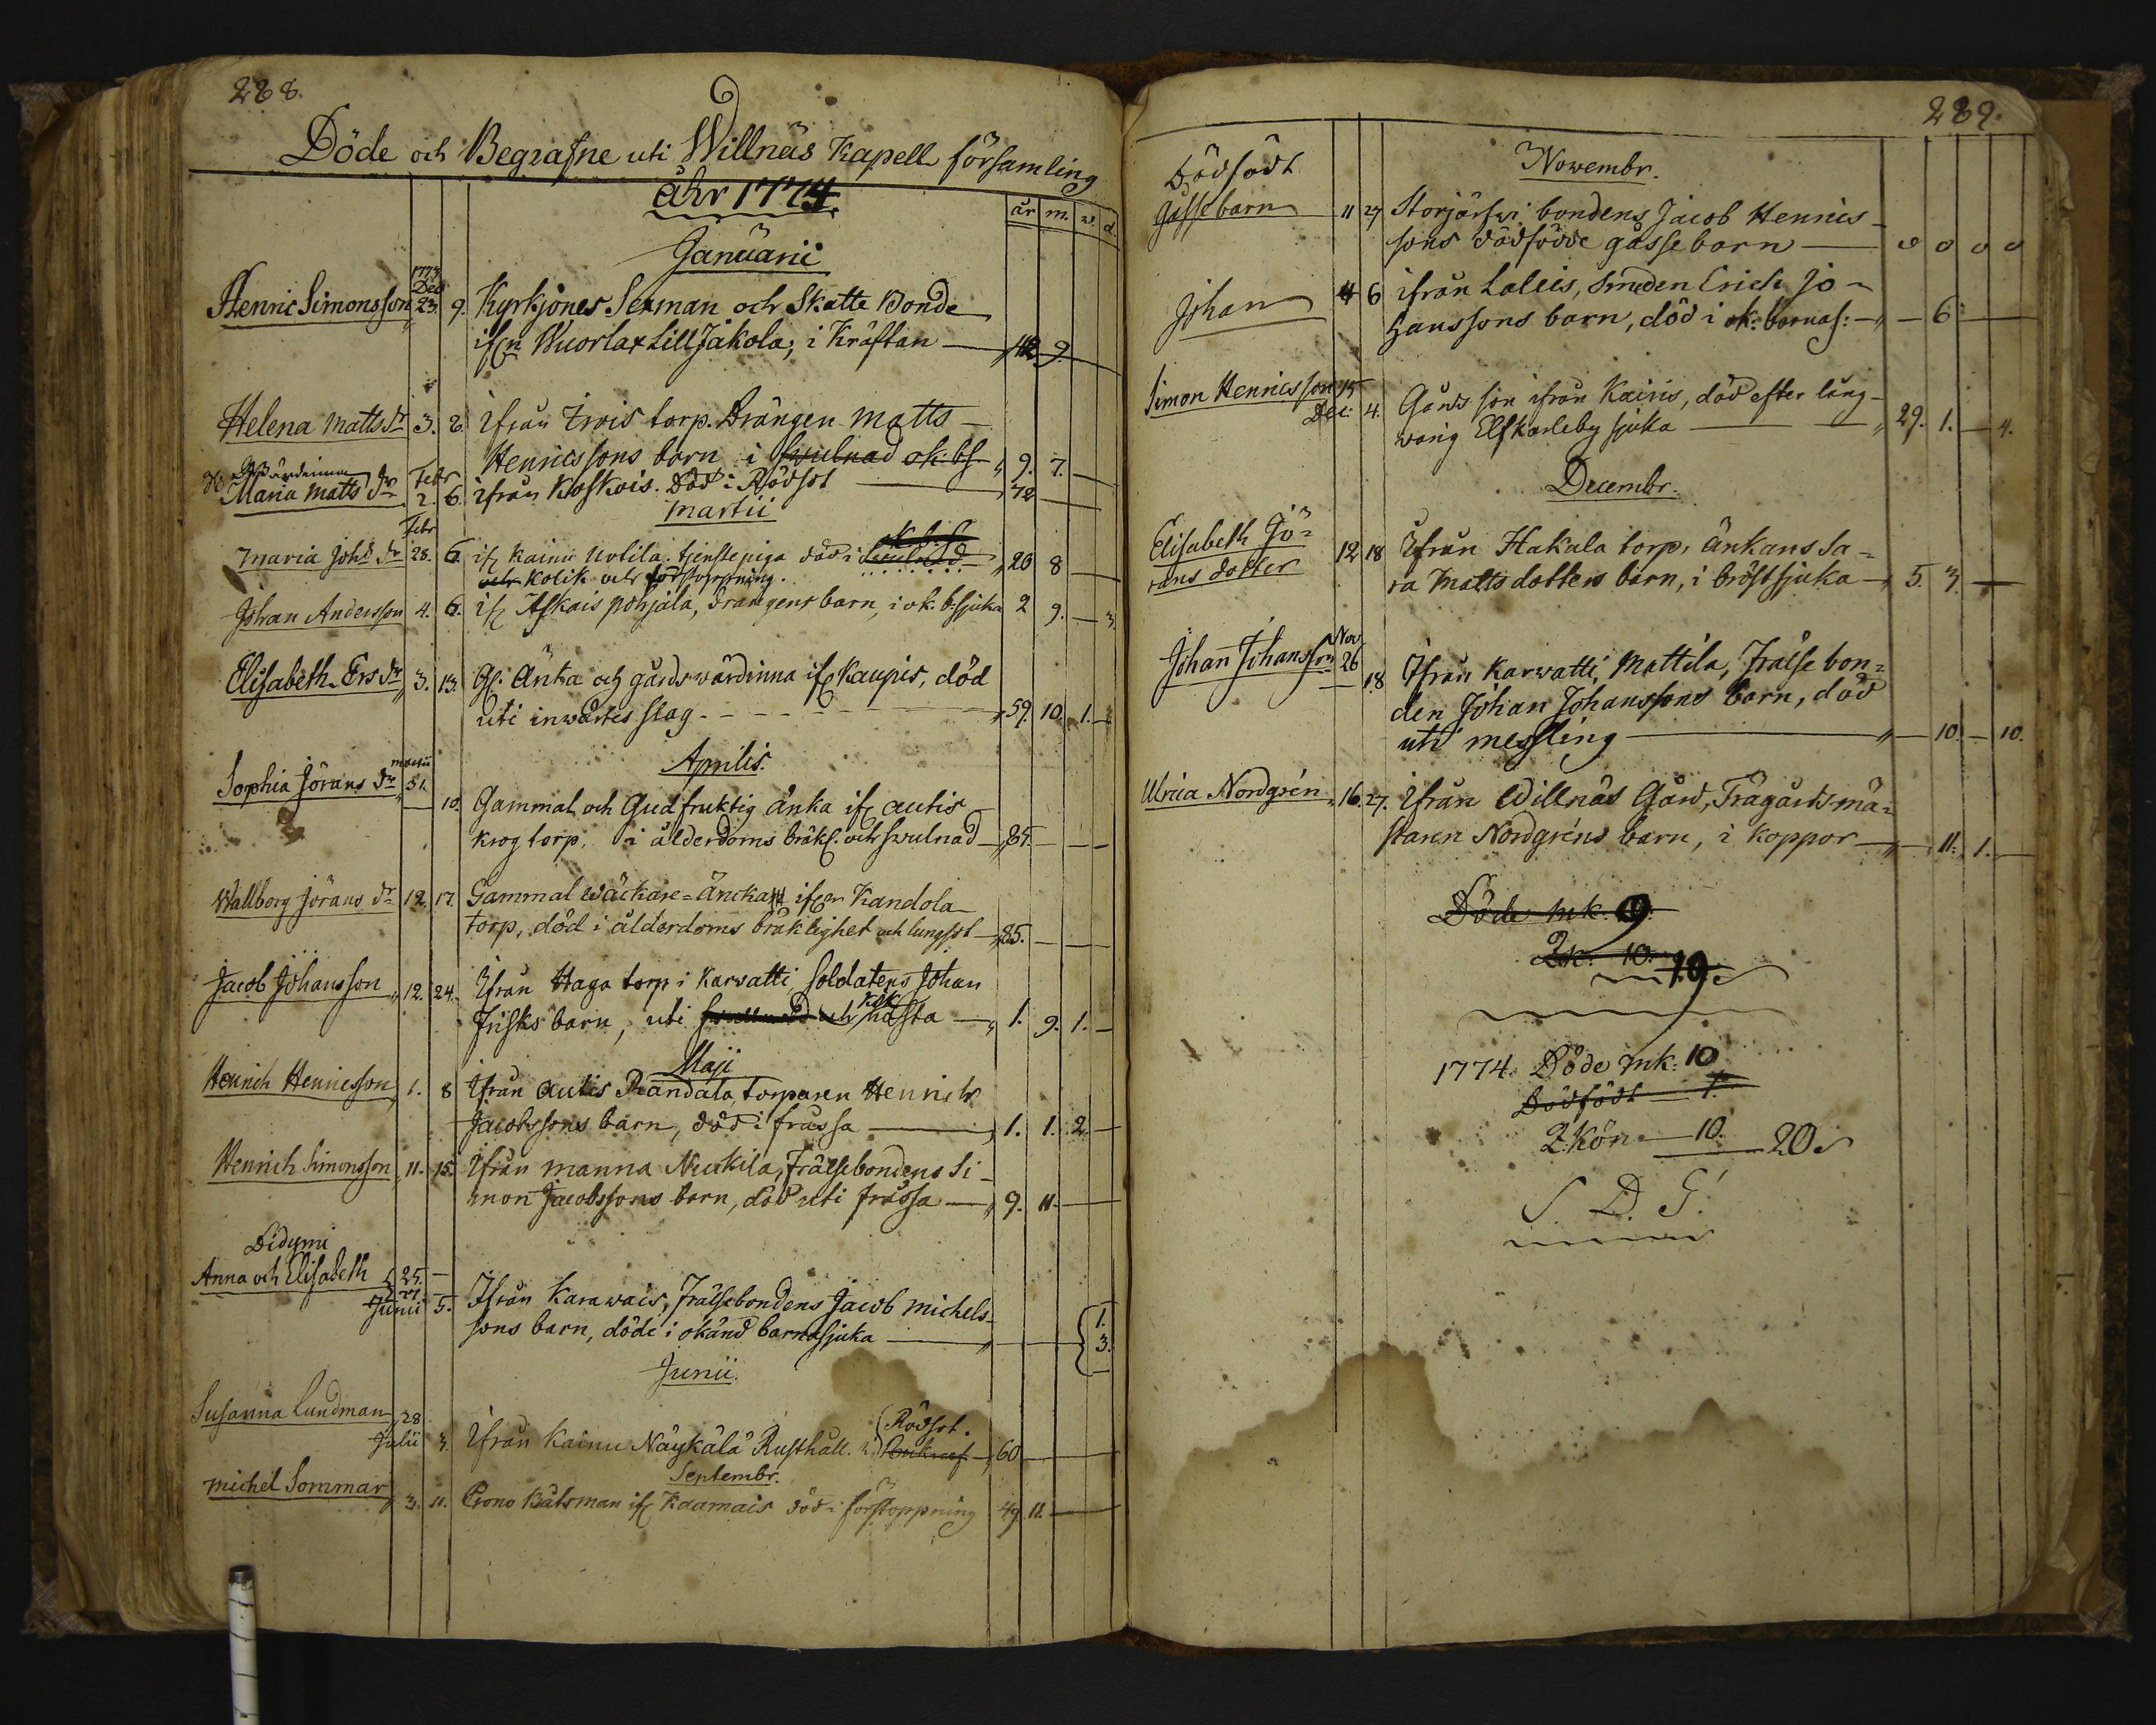 288.
Döde och Begrafne uti Willnäs Kapell församling
åhr 1774.
år m. v. d.
Januarii
1773
Dec
Henric Simonsson 23. 9. Kyrkjones Sexman och Skatte Bonde
ifrn Wuorlax Lill Jakola, i Kräftan 42 9.
Helena Matts dr 3. 2 ifrån Trois torp. Drängen Matts
Henricssons barn i swulnad ok: bs. 9. 7.
Wärdinnan Febr
Maria Matts dr 2. 6. ifrån Koskois. Död i Rödsot 72
Martii
Febr
Maria Joh: dr 28. 6. if Kainu Uotila. tjenstepiga död i 20 8
och Kolik och förstoppning.
Johan Andersson 4. 6. if Askais Pohjala, drängens barn, i ok. b:sjuka 2 9. 3.
Elisabeth Ers dr 3. 13. Gl. Änka och gårdswärdinna if Kaupis, död
uti inwärtes slag 59. 10. 1.
Aprilis.
Martii
Sophia Jörans dr 31. 10. Gammal och Gudfruktig änka if Autis
krog torp. i ålderdoms bräkl. och swulnad 85.
Wallborg Jörans dr 12. 17. Gammal Wäckare-äncka ifrn Kandola
torp, död i ålderdoms bräklighet och lungsot 85.
Jacob Johansson 12. 24. Ifrån Haga torp i Karvatti, Soldatens Johan
kik
Frisks barn, uti swullnad och hosta 1. 9. 1.
Maji
Henrich Henricsson 1. 8 Ifrån Autis Randala, torparen Henrich
Jacobssons barn, död i frässa 1. 1. 2
Henrich Simonsson 11. 15. Ifrån Manna Nuckila, Frälsebondens Si-
mon Jacobssons barn, död uti frässa 9. 11.
Didymi
Anna och Elisabeth 25.
27.
Junii 5. Ifrån Karawais, Frälsebondens Jacob Michels-
sons barn, döde i okänd barnasjuka 1.
3.
Junii.
Susanna Lundman 28
Rödsot.
Julii 3. Ifrån Kainu Näykälä Rusthåll. i 60
Septembr.
Michel Sommar 3. 11. Crono Båtsman if Kaamais död i förstoppning 49 11.
289.
Nowembr.
Dödfödt
gåssebarn 11 27 Storjärfwi bondens Jacob Henrics-
sons dödfödde gåssebarn 0 0 0 0
Johan 4 6 ifrån Lalleis, Smeden Erich Jo-
hanssons barn, död i ok: barnas: 6
Simon Henricsson 15
Dec: 4. Gårds son ifrån Kairis, död efter lång-
warig Elfkarleby sjuka 29. 1. 4.
Decembr.
Elisabeth Jö-
rans dotter 12 18 Ifrån Hakala torp, änkans Sa-
ra Mattsdotters barn, i bröstsjuka 5. 3.
Nov
Johan Johansson 26 18 Ifrån Karwatti, Mattila, Frälsebon-
den Johan Johanssons barn, död
uti messling 10. 10.
Ulrica Nordgrén 16. 27. Ifrån Willnäs Gård, Trägårdsmä-
staren Nordgréns barn, i koppor 11. 1.
Döde mk. 9.
2k. 10. 19.
1774. Döde mk: 10
Dödfödt 1.
2. Kön 10. 20
S. D. G!